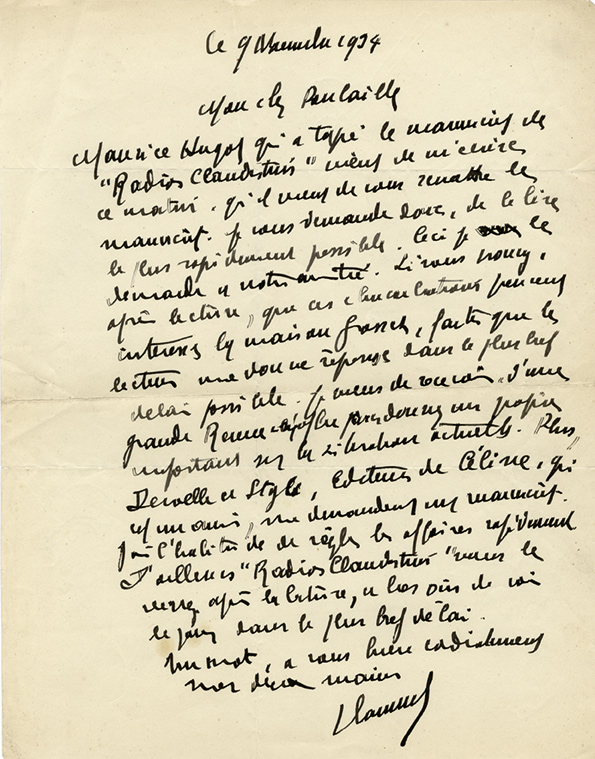 Le 9 Novembre 1934
Mon cher Poulaille
Maurice Hugot qui a tapé le manuscrit de
"Radios Clandestins" vient de m'écrire
ce matin. qu'il vient de vous remettre le
manuscrit. Je vous demande donc, de le lire
le plus rapidement possible. Ceci je le
demande à notre amitié. Si vous voyez,
après lecture, que ces élucubrations peuvent
intéresser la maison Grasset, faites que les
lecteurs me donne réponse dans le plus bref
délai possible. Je viens de recevoir, d'une
grande Revue pour donner un papier
important sur la situation actuelle. Plus,
Denoël et Steele, Editeurs de Céline, qui
me demandent un manuscrit.
J'ai l'habitude de régler les affaires rapidement
D'ailleurs "Radios Clandestins" vous le
verrez après la lecture, a bas de voir
le jour dans le plus bref délai.
Un mot, à vous bien cordialement
mes deux mains